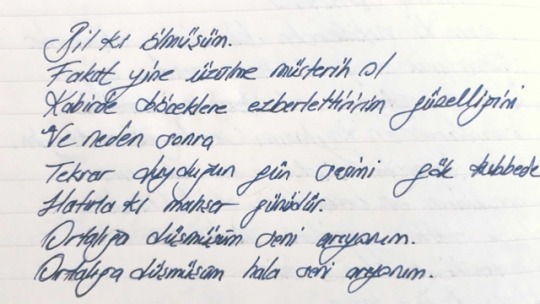 Bil ki ölmüşüm.
Fakat yine üzülme müsterih ol
Kabirde böceklere ezberlettiririm güzelliğini
Ve neden sonra
Tekrar duyduğun gün sesimi gök kubbede
Hatırla ki mahşer günüdür.
Ortalığa düşmüşüm seni arıyorum.
Ortalığa düşmüşüm hala seni arıyorum.